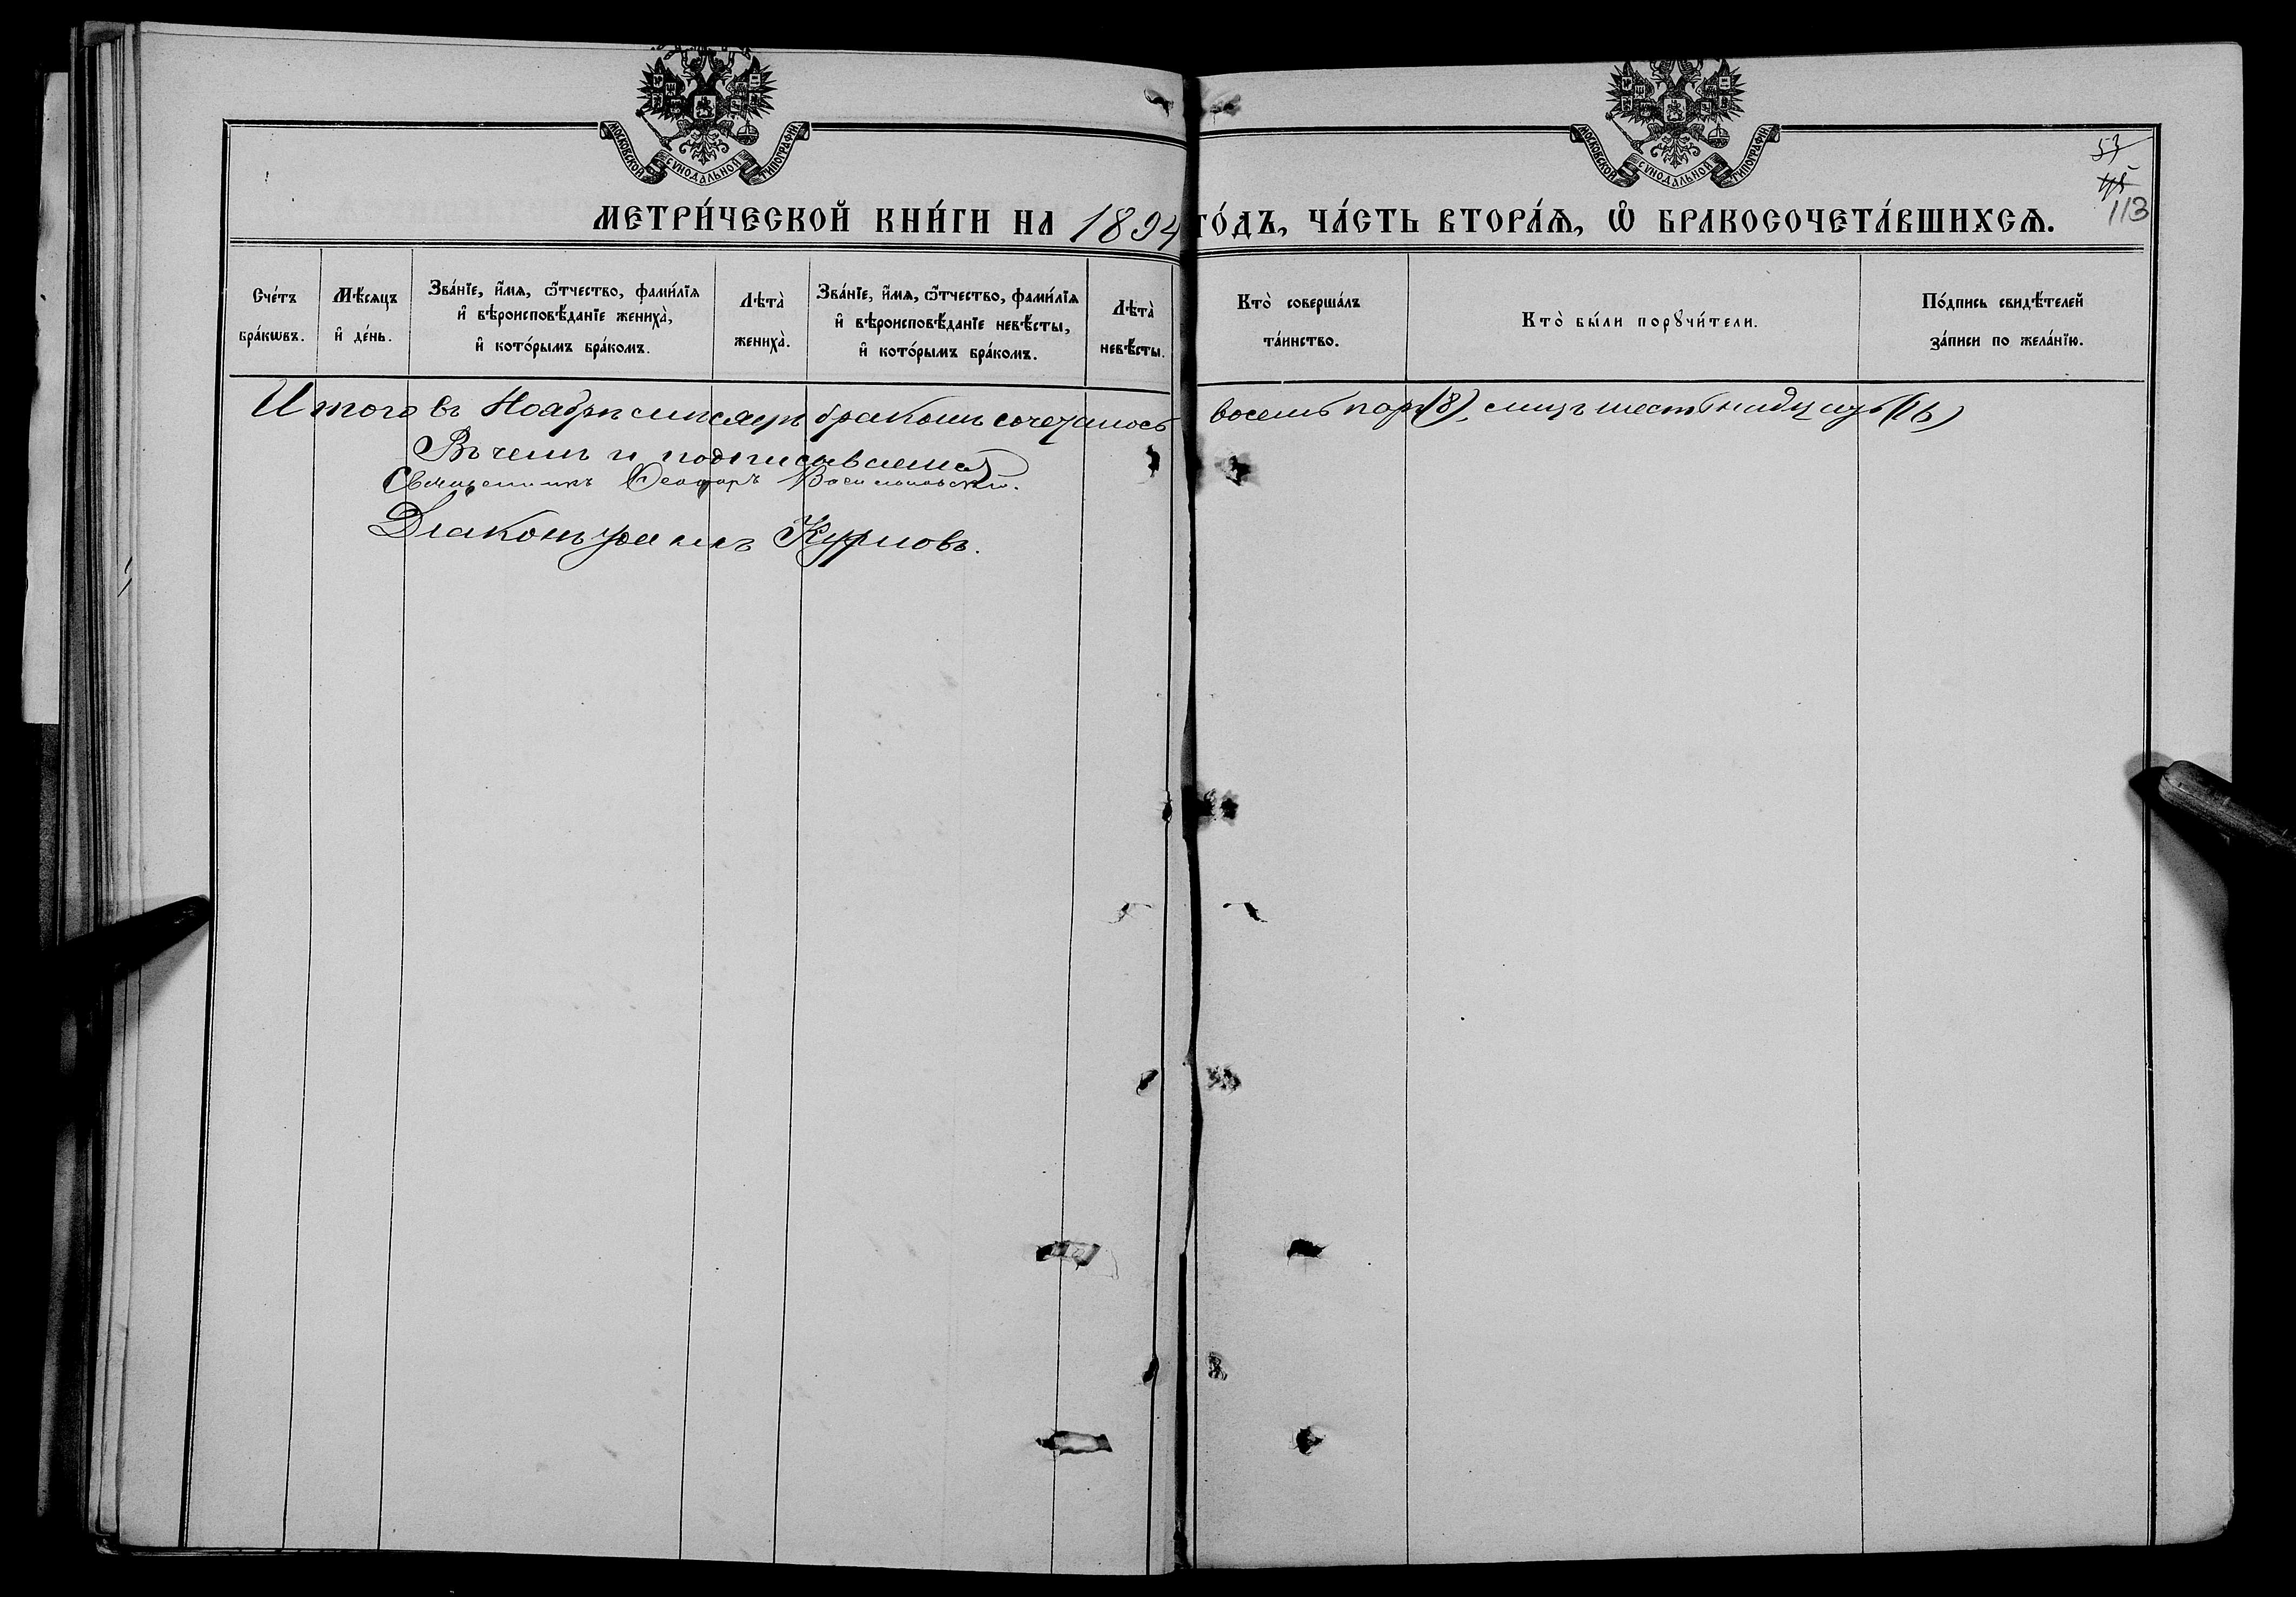 МОСКОВСКОЙ СѴНОДАЛЬНОЙ ТИПОГРАФІИ.
МОСКОВСКОЙ СѴНОДАЛЬНОЙ ТИПОГРАФІИ.
53
45
113
МЕТРИ́ЧЕСКОЙ КНИ́ГИ НА 1894 ГО́ДЪ, ЧА́СТЬ ВТОРА́Ѧ, Ѽ БРАКОСОЧЕТА́ВШИХСѦ.
Сче́тъ
бра́кѡвъ.
Мѣ́сяцъ
и҆ де́нь.
Зва́нїе, и҆́мя, ѻ҆́тчество, фами́лїя
и҆ вѣроисповѣ́данїе женихà,
и҆ кото́рымъ бра́комъ.
Лѣтà
женихà.
Зва́нїе, и҆́мя, ѻ҆́тчество, фами́лїя
и҆ вѣроисповѣ́данїе невѣ́сты,
и҆ кото́рымъ бра́комъ.
Лѣтà
невѣ́сты.
Ктò соверша́лъ
та́инство.
Ктò бы́ли порꙋчи́тели.
По́дпись свидѣ́телей
за́писи по жела́нїю.
Итого въ Ноябрѣ мѣсяцѣ бракомъ сочеталось восемь паръ (8), лицъ шестьнадцать (16)
Въ чемъ и подписываемся
Священникъ Ѳеодоръ
Діаконъ Курловъ.